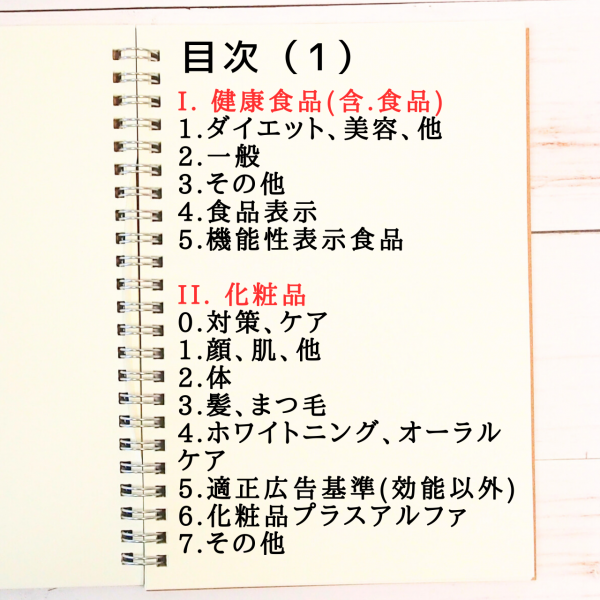 目次（1）
I. 健康食品(含.食品)
1.ダイエット、美容、他
2.一般
3.その他
4.食品表示
5.機能性表示食品
II. 化粧品
0.対策、ケア
1.顔、肌、他
2.体
3.髪、まつ毛
4.ホワイトニング、オーラル
ケア
5.適正広告基準(効能以外)
6.化粧品プラスアルファ
7.その他